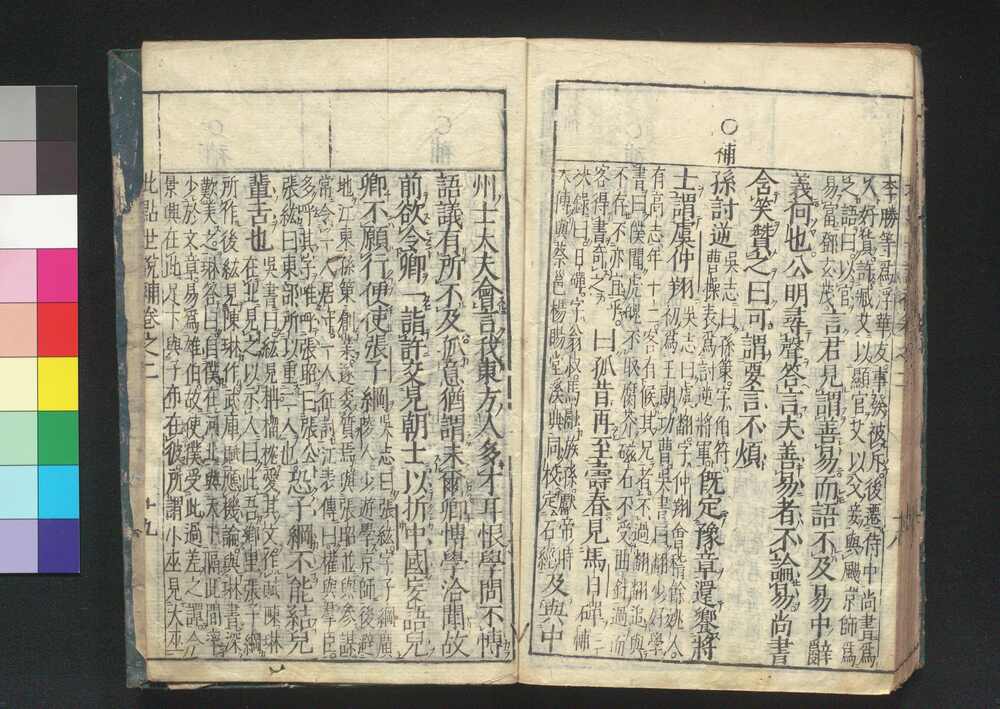 李勝等爲浮華友事發被斥後遷侍中尚書爲
人好貨許臧艾以顯官艾以父妾與颺京師爲
之語曰以官
易富鄧玄茂
言君見謂善易而語不及易中辭
義何也公明尋聲答言夫善易者不論易尚書
含笑贊之曰可謂要言不煩
○補
孫討逆
吳志曰孫策字伯符
曹操表爲討逆將軍
既定豫章還饗將
士謂虞仲翔
吳志曰虞翻字仲翔會稽餘姚人
翻初爲王朗功曹吳書曰翻少好學
有高志年十二客有候其兄者不過翻翻追與
書曰僕聞虎魄不取腐芥磁石不受曲針過而
不存不亦宜乎
客得書奇之
曰孤昔再至壽春見馬日磾
三
輔
決錄曰日磾字翁叔馬融族孫獻帝時
大傅與蔡邕楊賜堂谿典同校定石經
及與中
州士大夫會言我東方人多才耳恨學問不博
語議有所不及孤意猶謂未爾卿博學洽聞故
前欲令卿一詣許交見朝士以折中國妄語兒
卿不願行便使張子綱
吳志曰張紘字子綱廣
陵人少遊學京師後避
地江東孫策創業遂委質焉與張昭並與參謀
常令一人居守一人征討江表傳曰權與羣臣
多呼其字唯呼張昭曰張公
張紘曰東部所以重二人也
恐子綱不能結兒
輩舌也
吳書曰紘見柟榴枕愛其文作賦陳琳
在北見之以示人曰此吾鄉里張子綱
所作後紘見陳琳作武庫賦應機論與琳書深
歎美之琳答曰自僕在河北與天下隔此間率
少於文章易爲雄伯故使僕受此過差之譚今
景興在此足下與子布在彼所謂小巫見大巫
世說補卷之二 十九